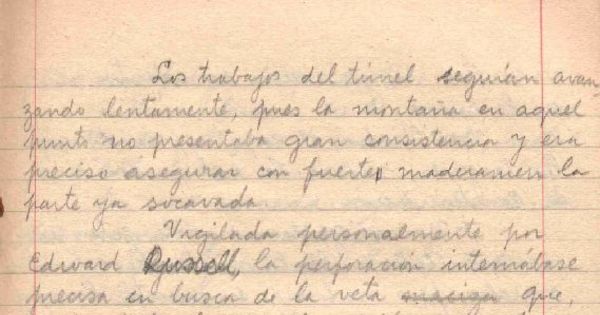 Los trabajos del túnel seguían avan-
zando lentamente, pues la montaña en aquel
punto no presentaba gran consistencia y era
preciso asegurar con fuerte maderamen la
parte ya socavada.
Vigilada personalmente por
Edward Russell, la perforación internábase
precisa en busca de la veta maciza que,